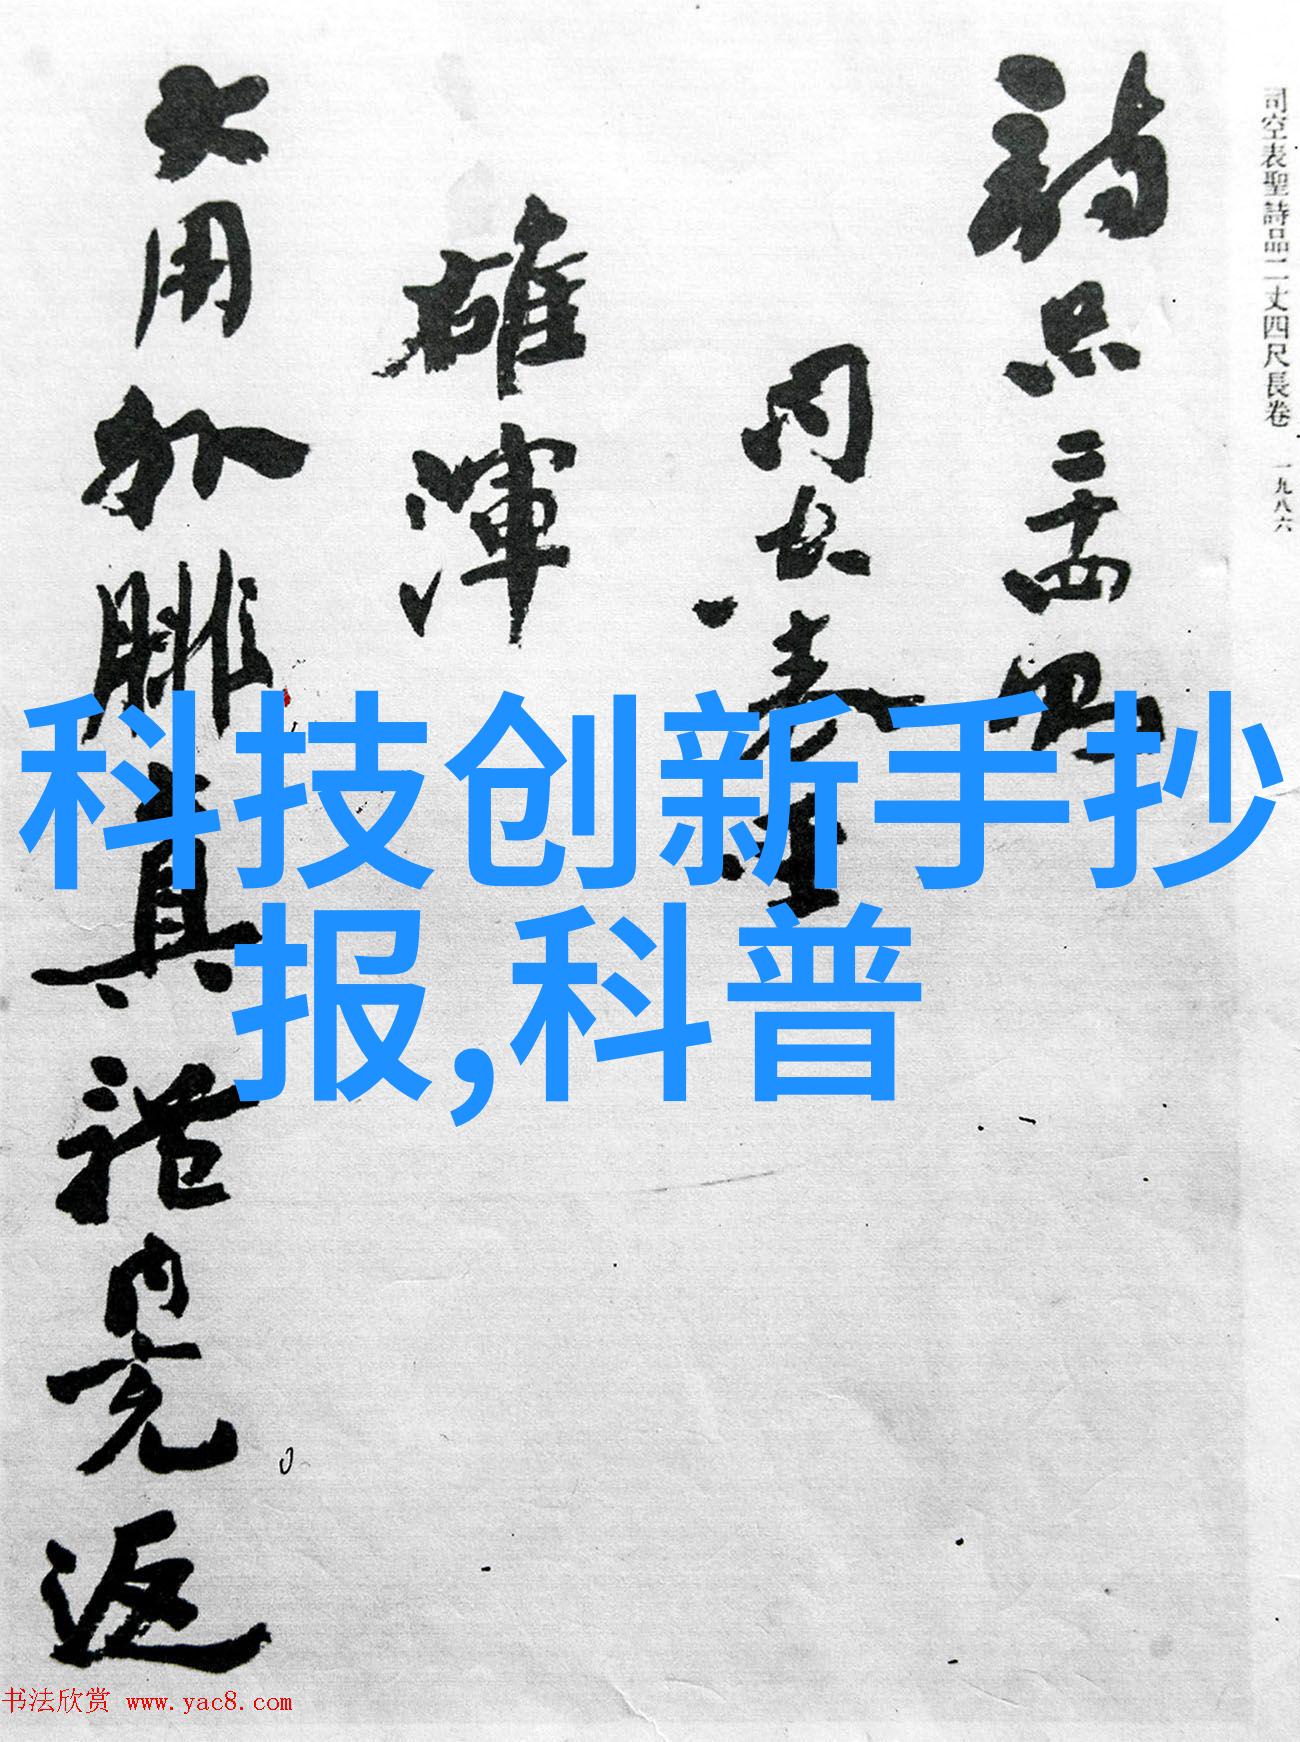 司空表聖詩品二丈四尺長卷 一九八六
詩品二十四則
司空表聖
雄渾
大用外腓真體內充返
科技创新手抄
报,科普
书法欣赏 www.yac8.com